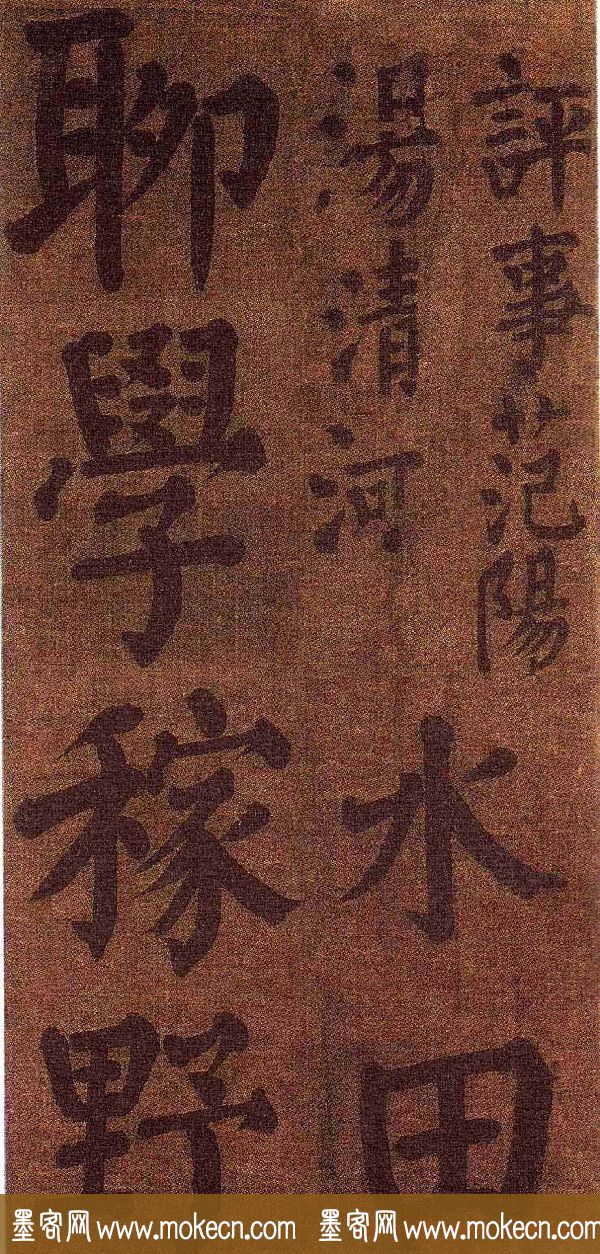 評事范陽
湯清河
水田
聊學稼野
墨客网 www.mokecn.com 墨客网 www.mokecn.com